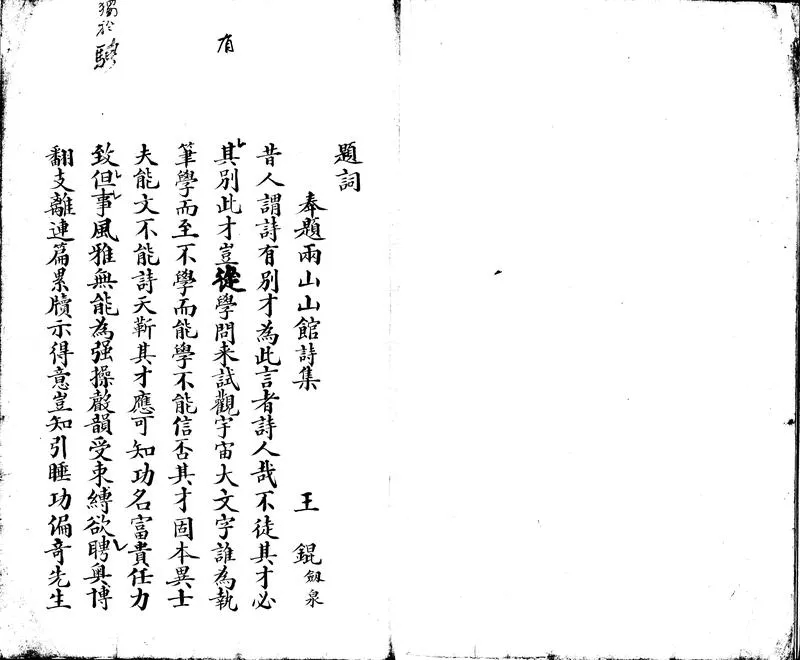 題詞
奉題兩山山館詩集 王錕劍泉
昔人謂詩有別才為此言者詩人哉不徒其才必
其別此才豈從學問來試觀宇宙大文字誰為執
筆學而至不學而能學不能信否其才固本異士
夫能文不能詩天靳其才應可知功名富貴任力
致但事風雅無能為强操聲韻受束縛欲聘奥博
翻支離連篇累牘示得意豈知引睡功偏奇先生
有
獨於